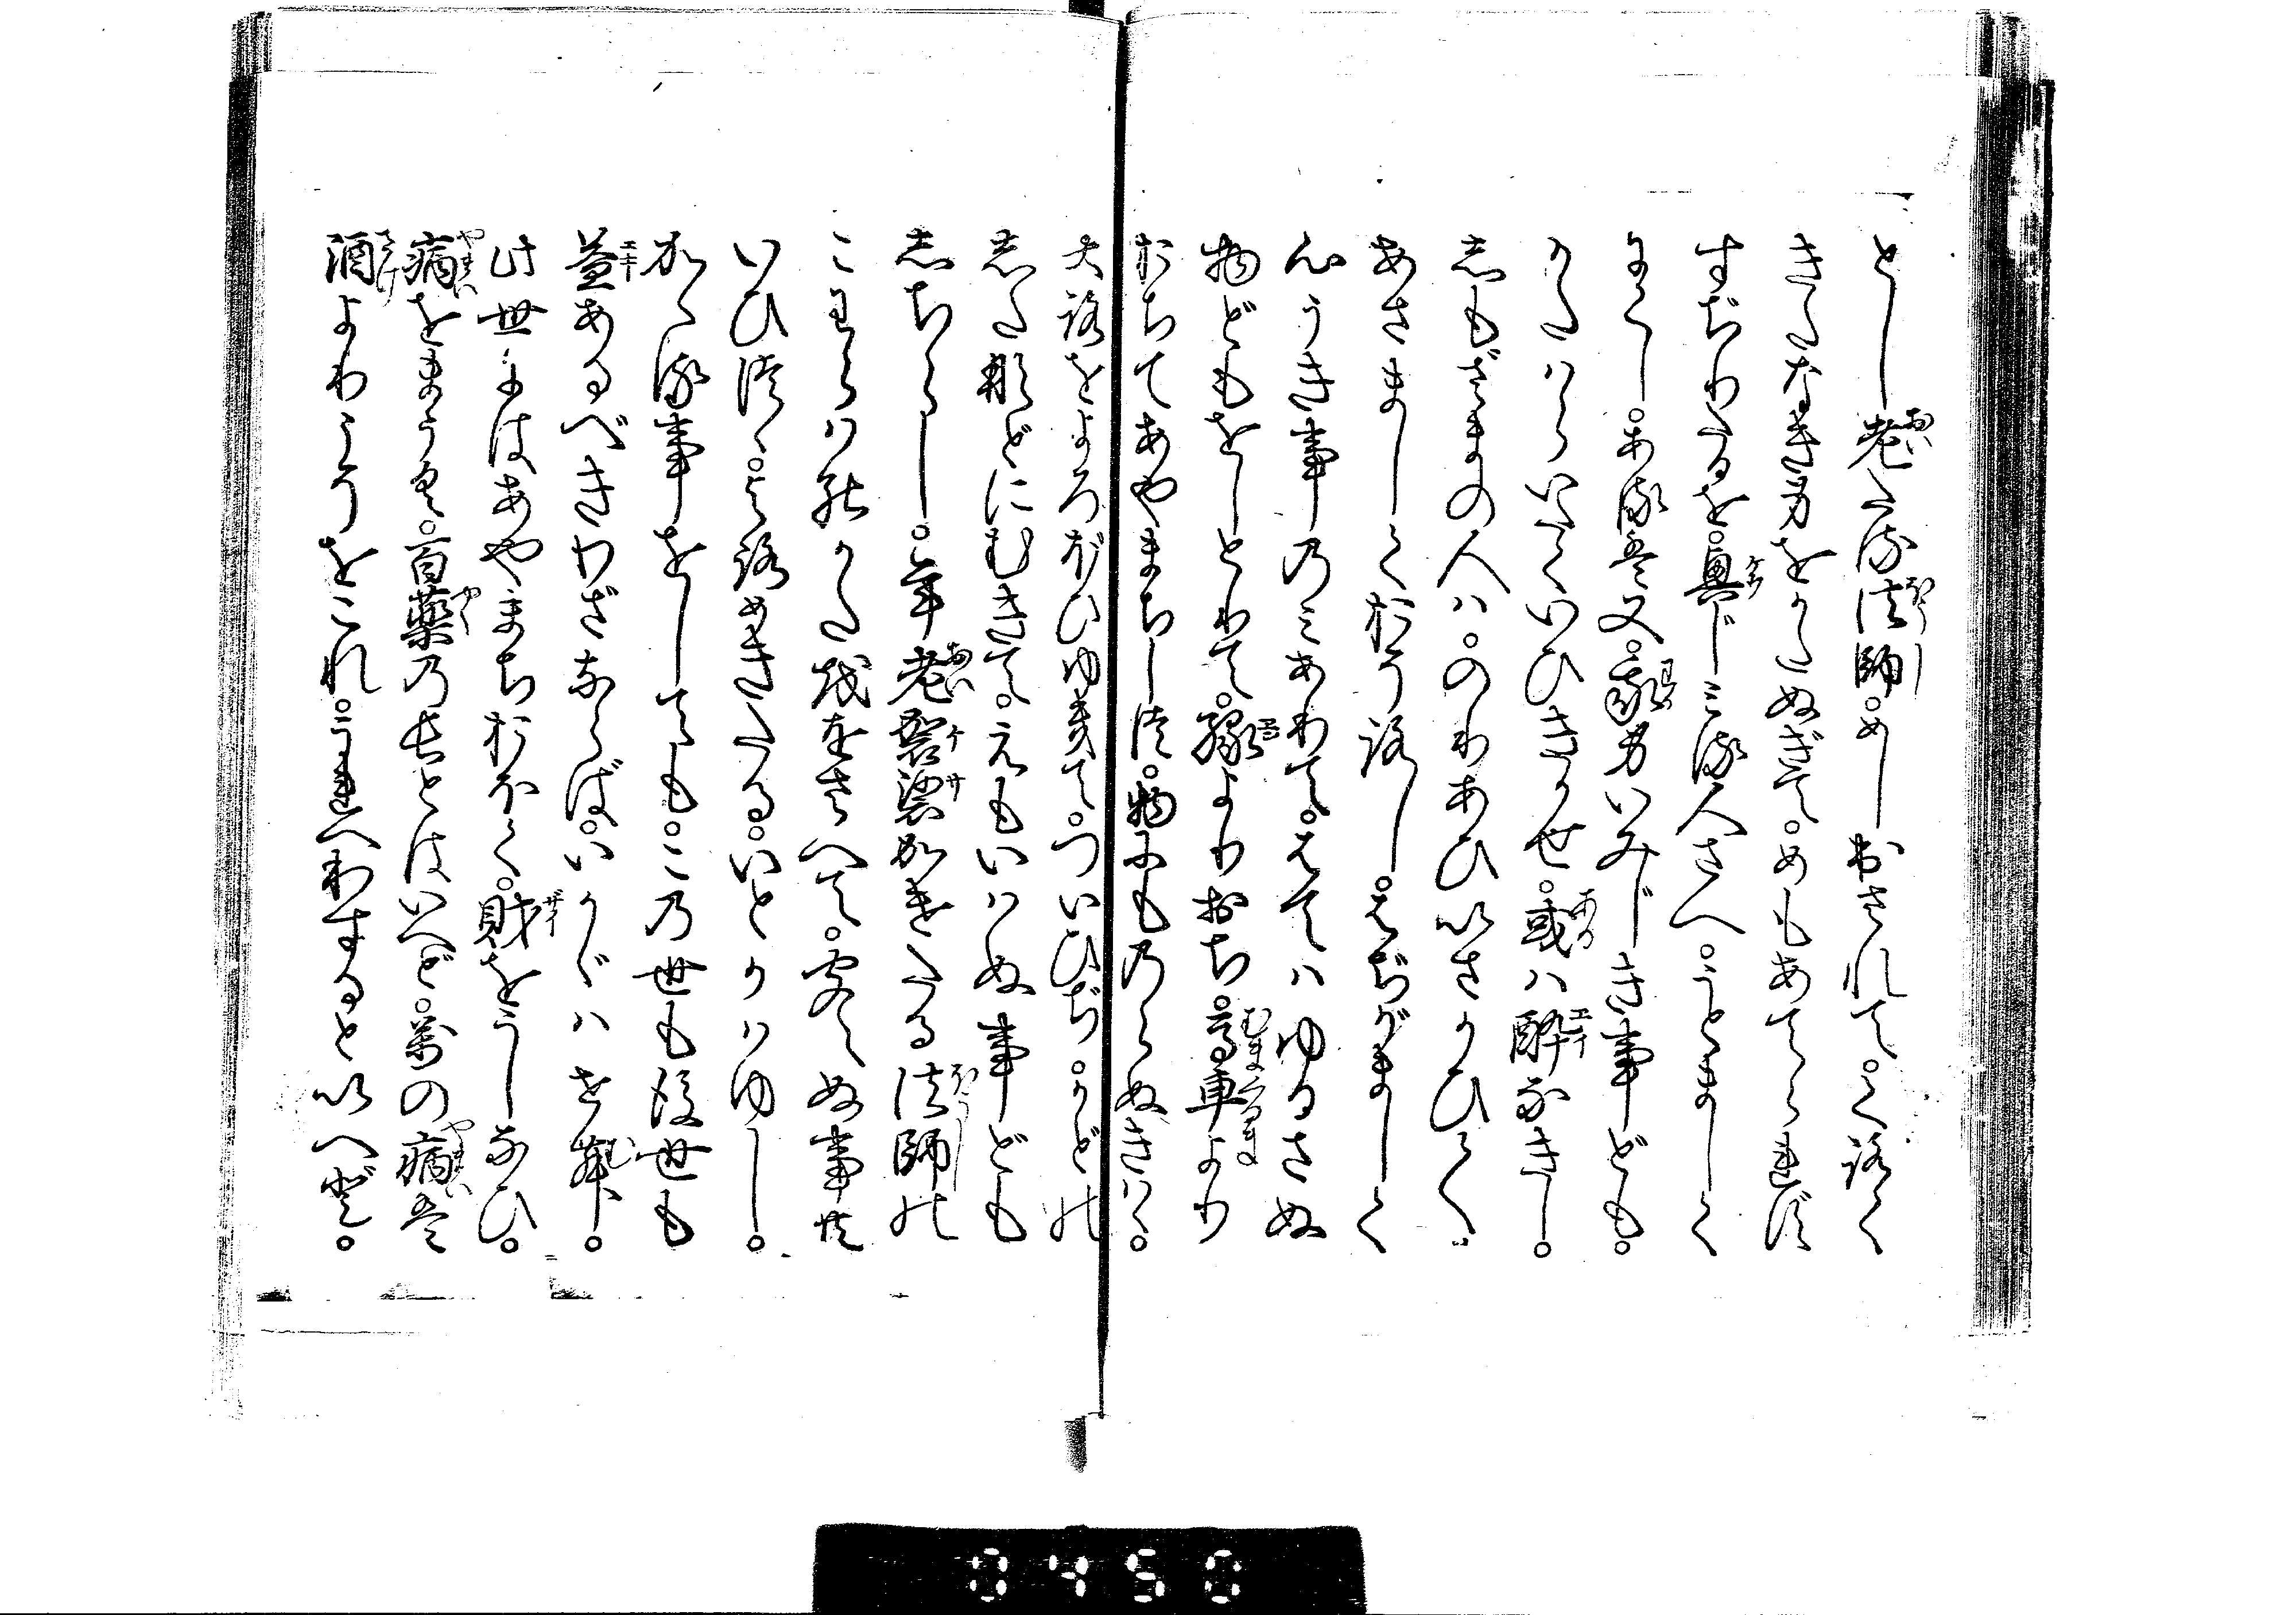 とし老たる法師。めし出されて。くろく
きたなき身をかたぬぎて。めもあてられず
すぢりたるを。興じミる人さへ。うとましく
にくし。ある は又。我身いみじき事ども。
かたハらいたくいひきかせ。或ハ酔なきし。
しもざまの人ハ。のりあひいさかひて。
あさましくおそろし。はぢがましく
心うき事のミありて。はてハゆるさぬ
物どもをしとりて。縁よりおち。馬車より
おちてあやまちしつ。物にものらぬきハヽ。
大路をよろぼひゆきて。ついひぢ。かどの
したなどにむきて。えもいハぬ事ども
しちらし。年老袈裟かけたる法師の
こわらハのかたをおさへて。聞えぬ事共
いひつゝ。よろめきたる。いとかハゆし。
かゝる事をしても。この世も後世も
益あるべきわざならば。いかゞハせむ。
此世にはあやまちおほく。財をうしなひ。
病をまうく。百薬の長とはいへど。萬の病は
酒よりこそをこれ。うれへわするといへど。
0450